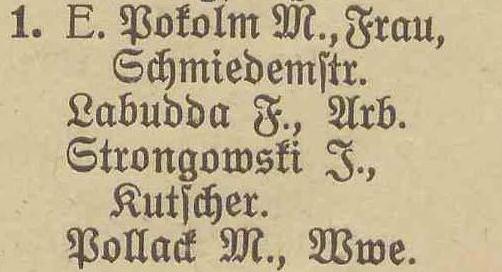 1. E. Pokolm M., Frau,
Schmiedemstr.
Labudda F., Arb.
Strongowski J.,
Kutscher.
Pollack M., Wwe.